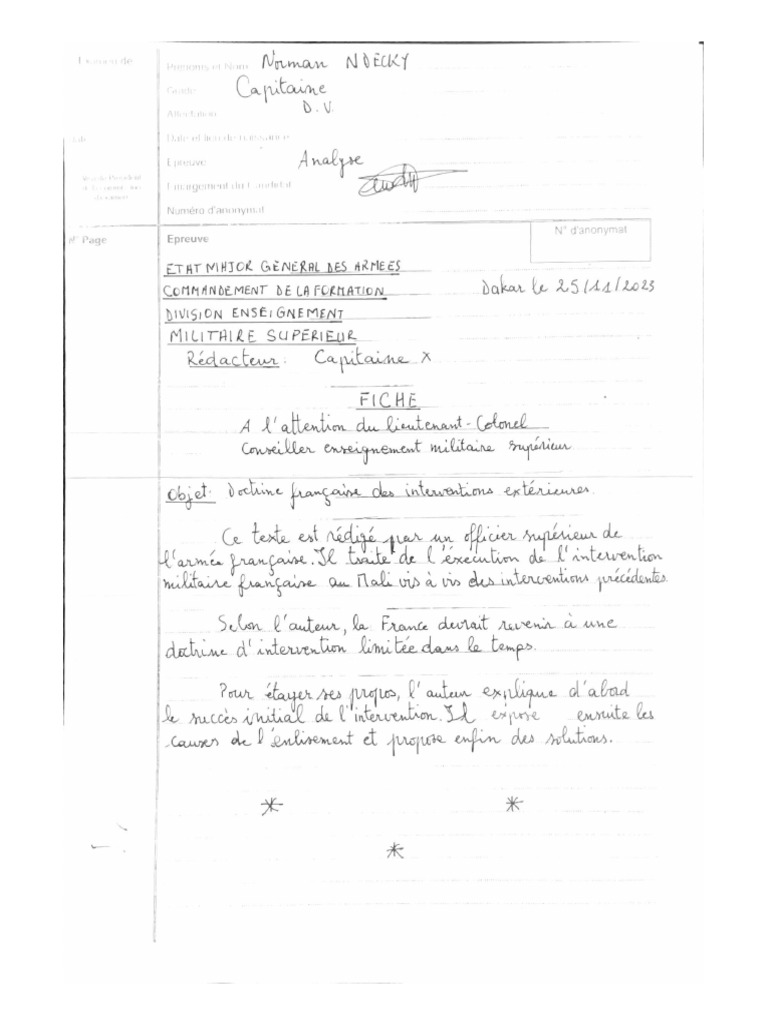 Examen de
Prénoms et Nom Norman NDECKY
Grade Capitaine
Affectation D.V.
Date et lieu de naissance
Epreuve Analyse
Emargement du Candidat
Numéro d'anonymat
N° Page
Epreuve
N° d'anonymat
ETAT MAJOR GENERAL DES ARMEES
COMMANDEMENT DE LA FORMATION
Dakar le 25/11/2023
DIVISION ENSEIGNEMENT
MILITAIRE SUPERIEUR
Rédacteur: Capitaine X
FICHE
A l'attention du lieutenant-Colonel
Conseiller enseignement militaire supérieur
Objet: Doctrine française des interventions extérieures.
Ce texte est rédigé par un officier supérieur de
l'armée française. Il traite de l'éxécution de l'intervention
militaire française au Mali vis à vis des interventions précédentes.
Selon l'auteur, la France devrait revenir à une
doctrine d'intervention limitée dans le temps.
Pour étayer ses propos, l'auteur explique d'abord
le succès initial de l'intervention. Il expose ensuite les
causes de l'enlisement et propose enfin des solutions.